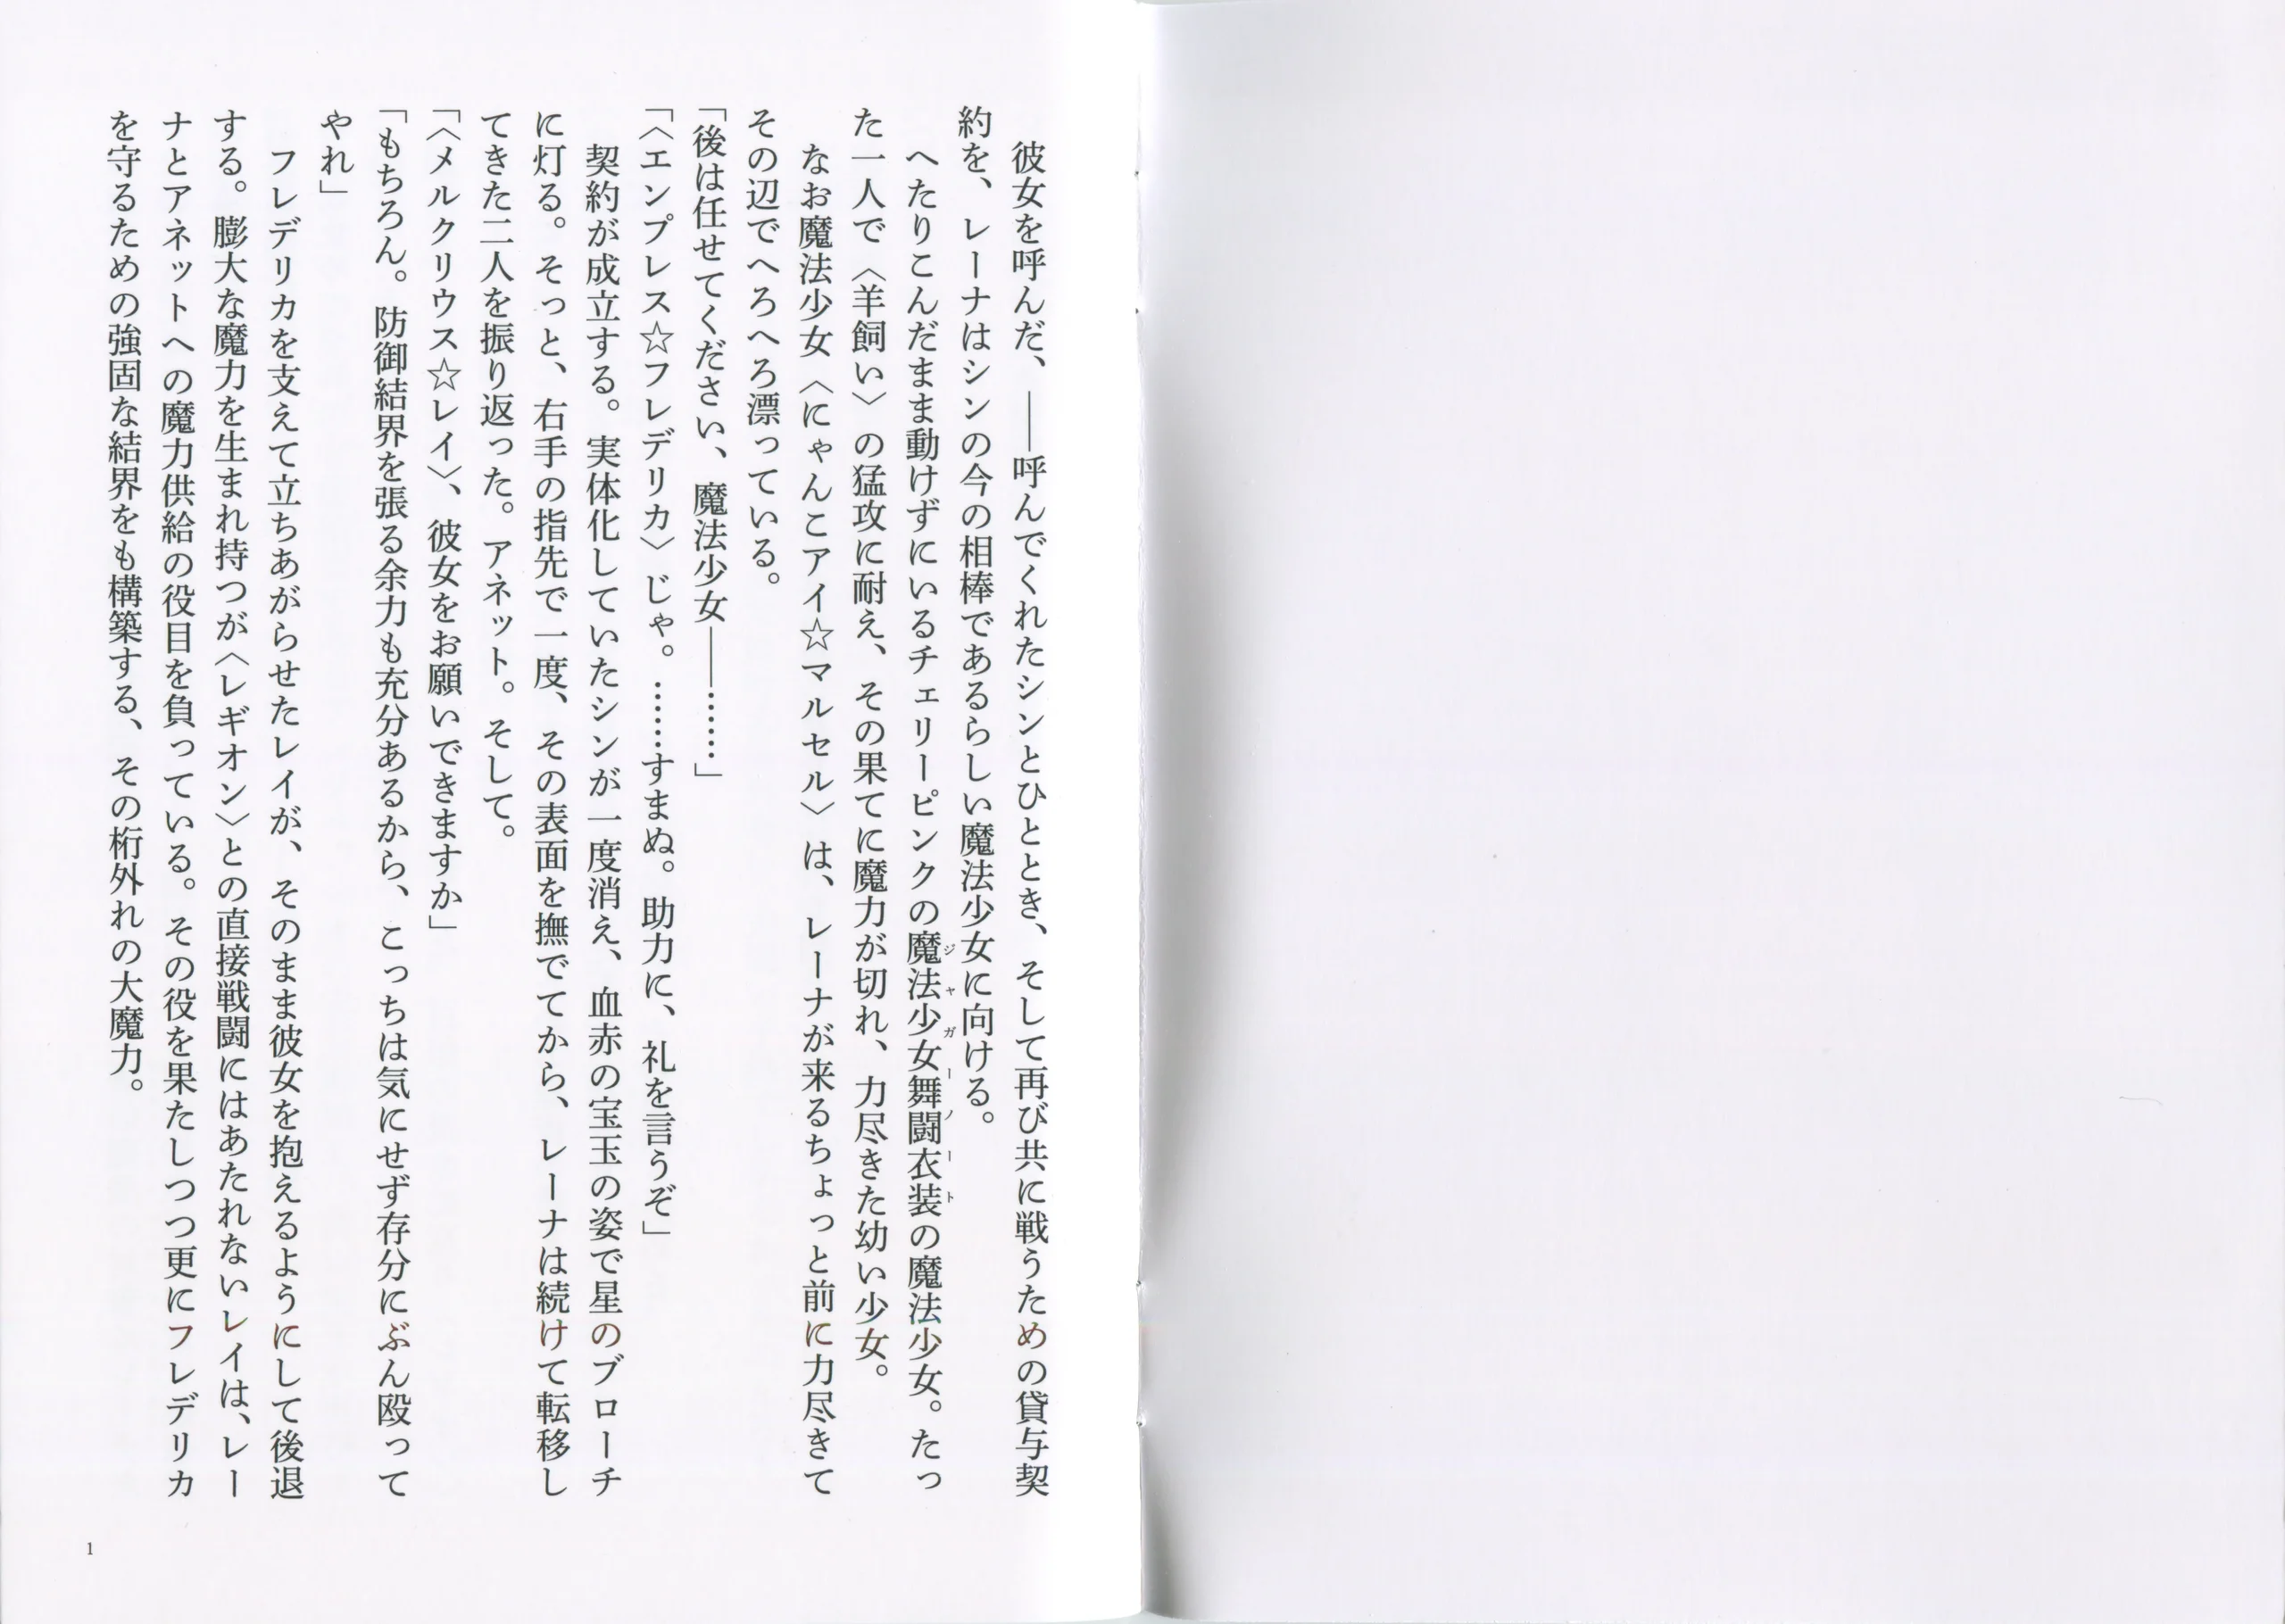 彼女を呼んだ、――呼んでくれたシンとひととき、そして再び共に戦うための貸与契
約を、レーナはシンの今の相棒であるらしい魔法少女に向ける。
へたりこんだまま動けずにいるチェリーピンクの魔法少女舞闘衣装の魔法少女。たっ
ジャガーノート
た一人で〈羊飼い〉の猛攻に耐え、その果てに魔力が切れ、力尽きた幼い少女。
なお魔法少女〈にゃんこアイ☆マルセル〉は、レーナが来るちょっと前に力尽きて
その辺でへろへろ漂っている。
「後は任せてください、魔法少女――……」
「〈エンプレス☆フレデリカ〉じゃ。……すまぬ。助力に、礼を言うぞ」
契約が成立する。実体化していたシンが一度消え、血赤の宝玉の姿で星のブローチ
に灯る。そっと、右手の指先で一度、その表面を撫でてから、レーナは続けて転移し
てきた二人を振り返った。アネット。そして。
「〈メルクリウス☆レイ〉、彼女をお願いできますか」
「もちろん。防御結界を張る余力も充分あるから、こっちは気にせず存分にぶん殴って
やれ」
フレデリカを支えて立ちあがらせたレイが、そのまま彼女を抱えるようにして後退
する。膨大な魔力を生まれ持つが〈レギオン〉との直接戦闘にはあたれないレイは、レー
ナとアネットへの魔力供給の役目を負っている。その役を果たしつつ更にフレデリカ
を守るための強固な結界をも構築する、その桁外れの大魔力。
1